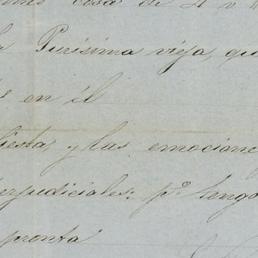 cosa de 4 v
Purisima vieja, qu
en él
fiesta y las emocione
erjudiciales: pº tengo
pronta